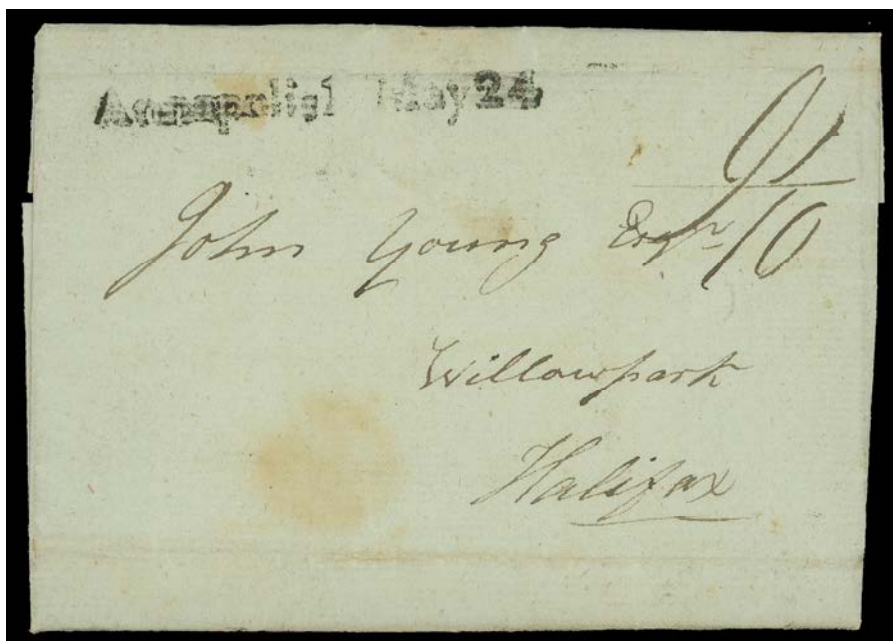 Annapolis May 24
9/10
John Young Esqr
Willowpark
Halifax